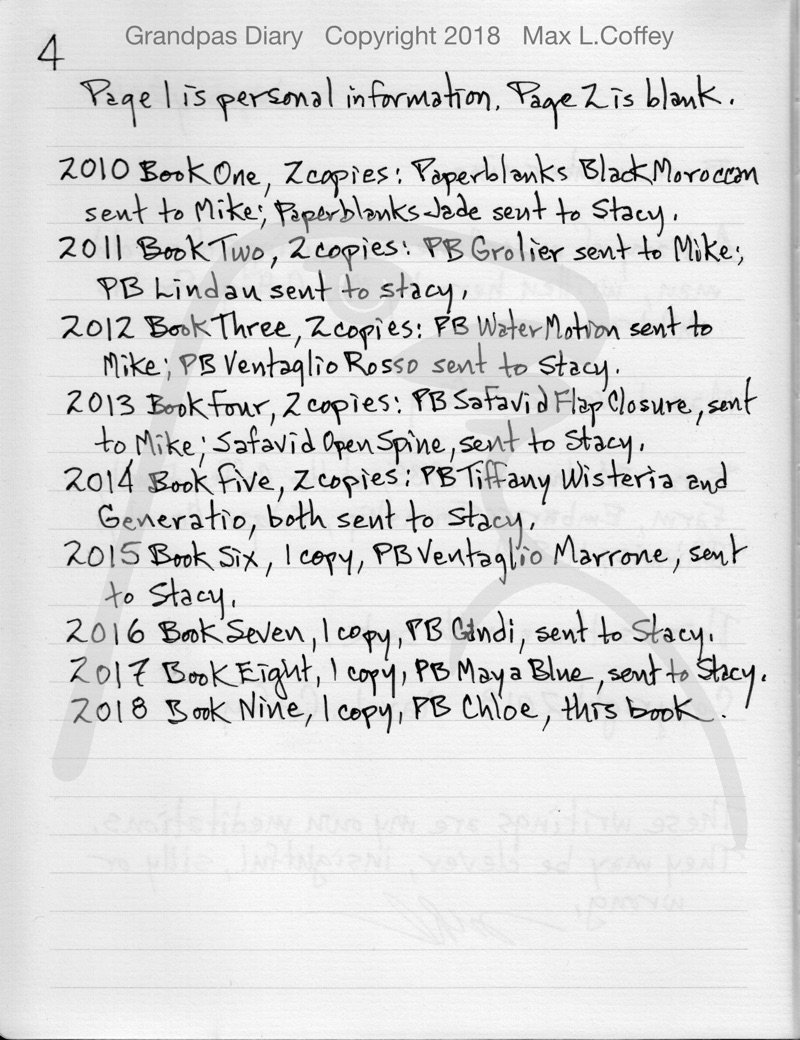 Grandpas Diary Copyright 2018 Max L.Coffey
4
Page 1 is personal information. Page 2 is blank.
2010 Book One, 2 copies: Paperblanks Black Moroccan
sent to Mike; Paperblanks Jade sent to Stacy.
2011 Book Two, 2 copies: PB Grolier sent to Mike;
PB Lindau sent to stacy.
2012 Book Three, 2 copies: PB Water Motion sent to
Mike; PB Ventaglio Rosso sent to Stacy.
2013 Book Four, 2 copies: PB Safavid Flap Closure, sent
to Mike; Safavid Open Spine, sent to Stacy.
2014 Book Five, 2 copies: PB Tiffany Wisteria and
Generatio, both sent to Stacy.
2015 Book Six, 1 copy, PB Ventaglio Marrone, sent
to Stacy.
2016 Book Seven, 1 copy, PB sent to Stacy.
2017 Book Eight, 1 copy, PB Maya Blue, sent to Stacy.
2018 Book Nine, 1 copy, PB Chloe, this book.
These writings are my own meditations.
They may be clever, insightful, silly or
wrong.